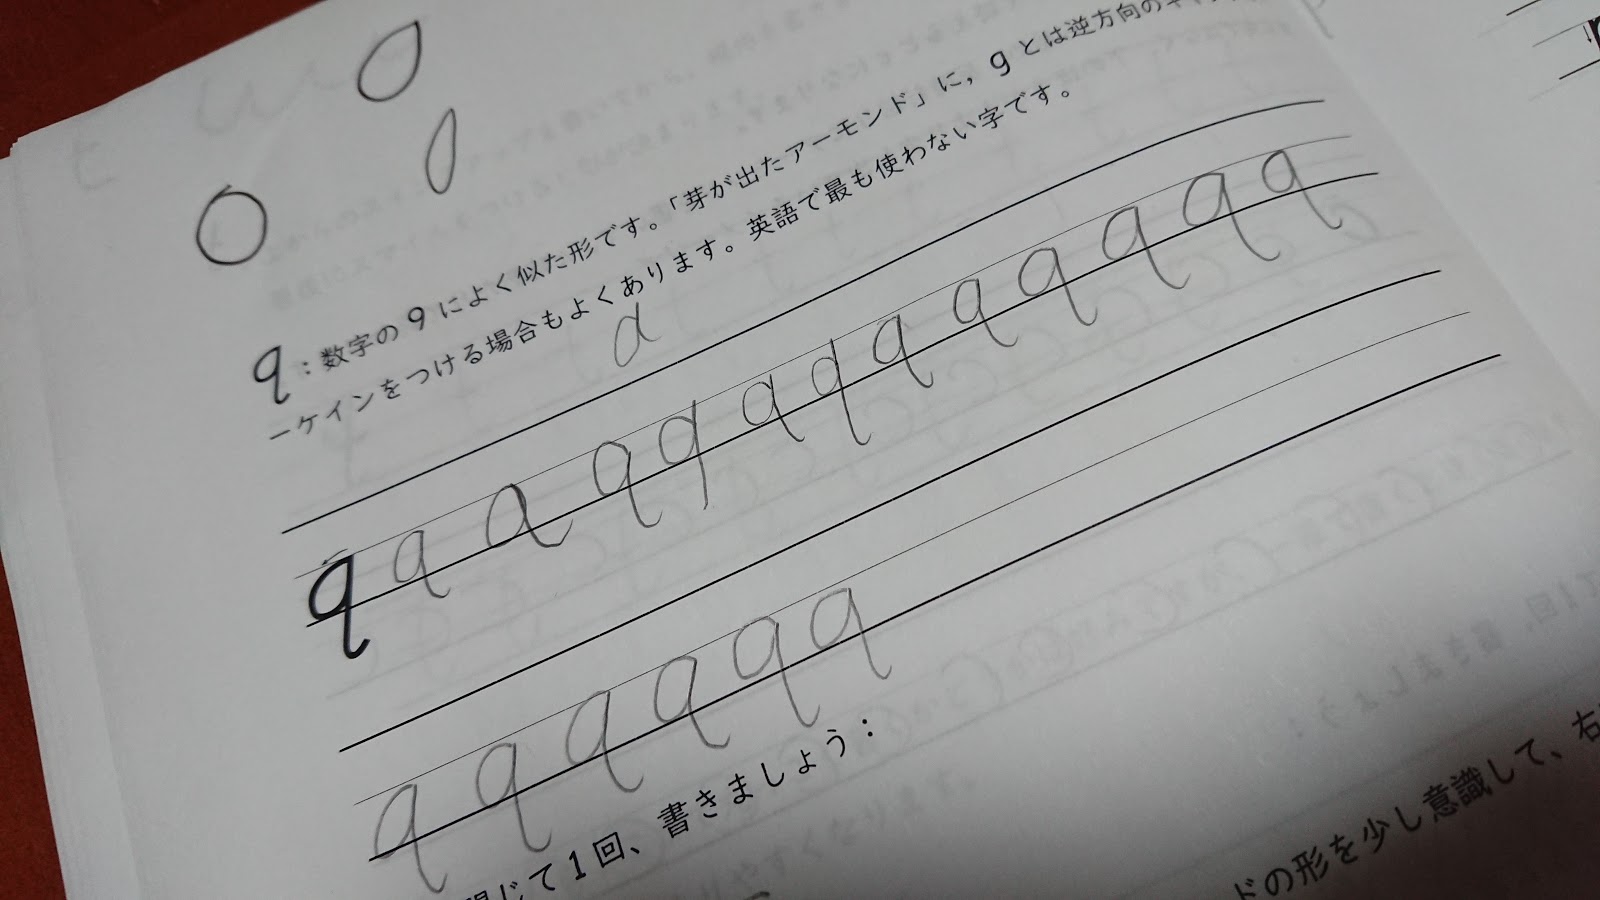 a
q：数字の9によく似た形です。「芽が出たアーモンド」に，gとは逆方向の
ーケインをつける場合もよくあります。英語で最も使わない字です。
q q q q q q q q q q q q q
q q q q q q
じて1回、書きましょう：
ドの形を少し意識して、右